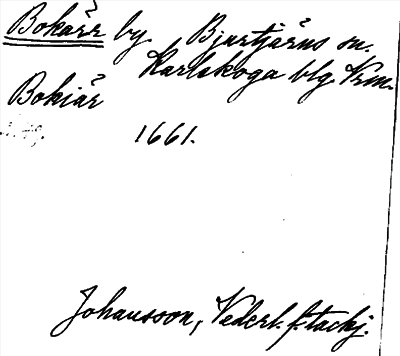 Bokärr by Bjurtjärns sn.
Karlskoga blg Vrm.
Bokiär
1661.
Johansson, Vederl. f. tackj.